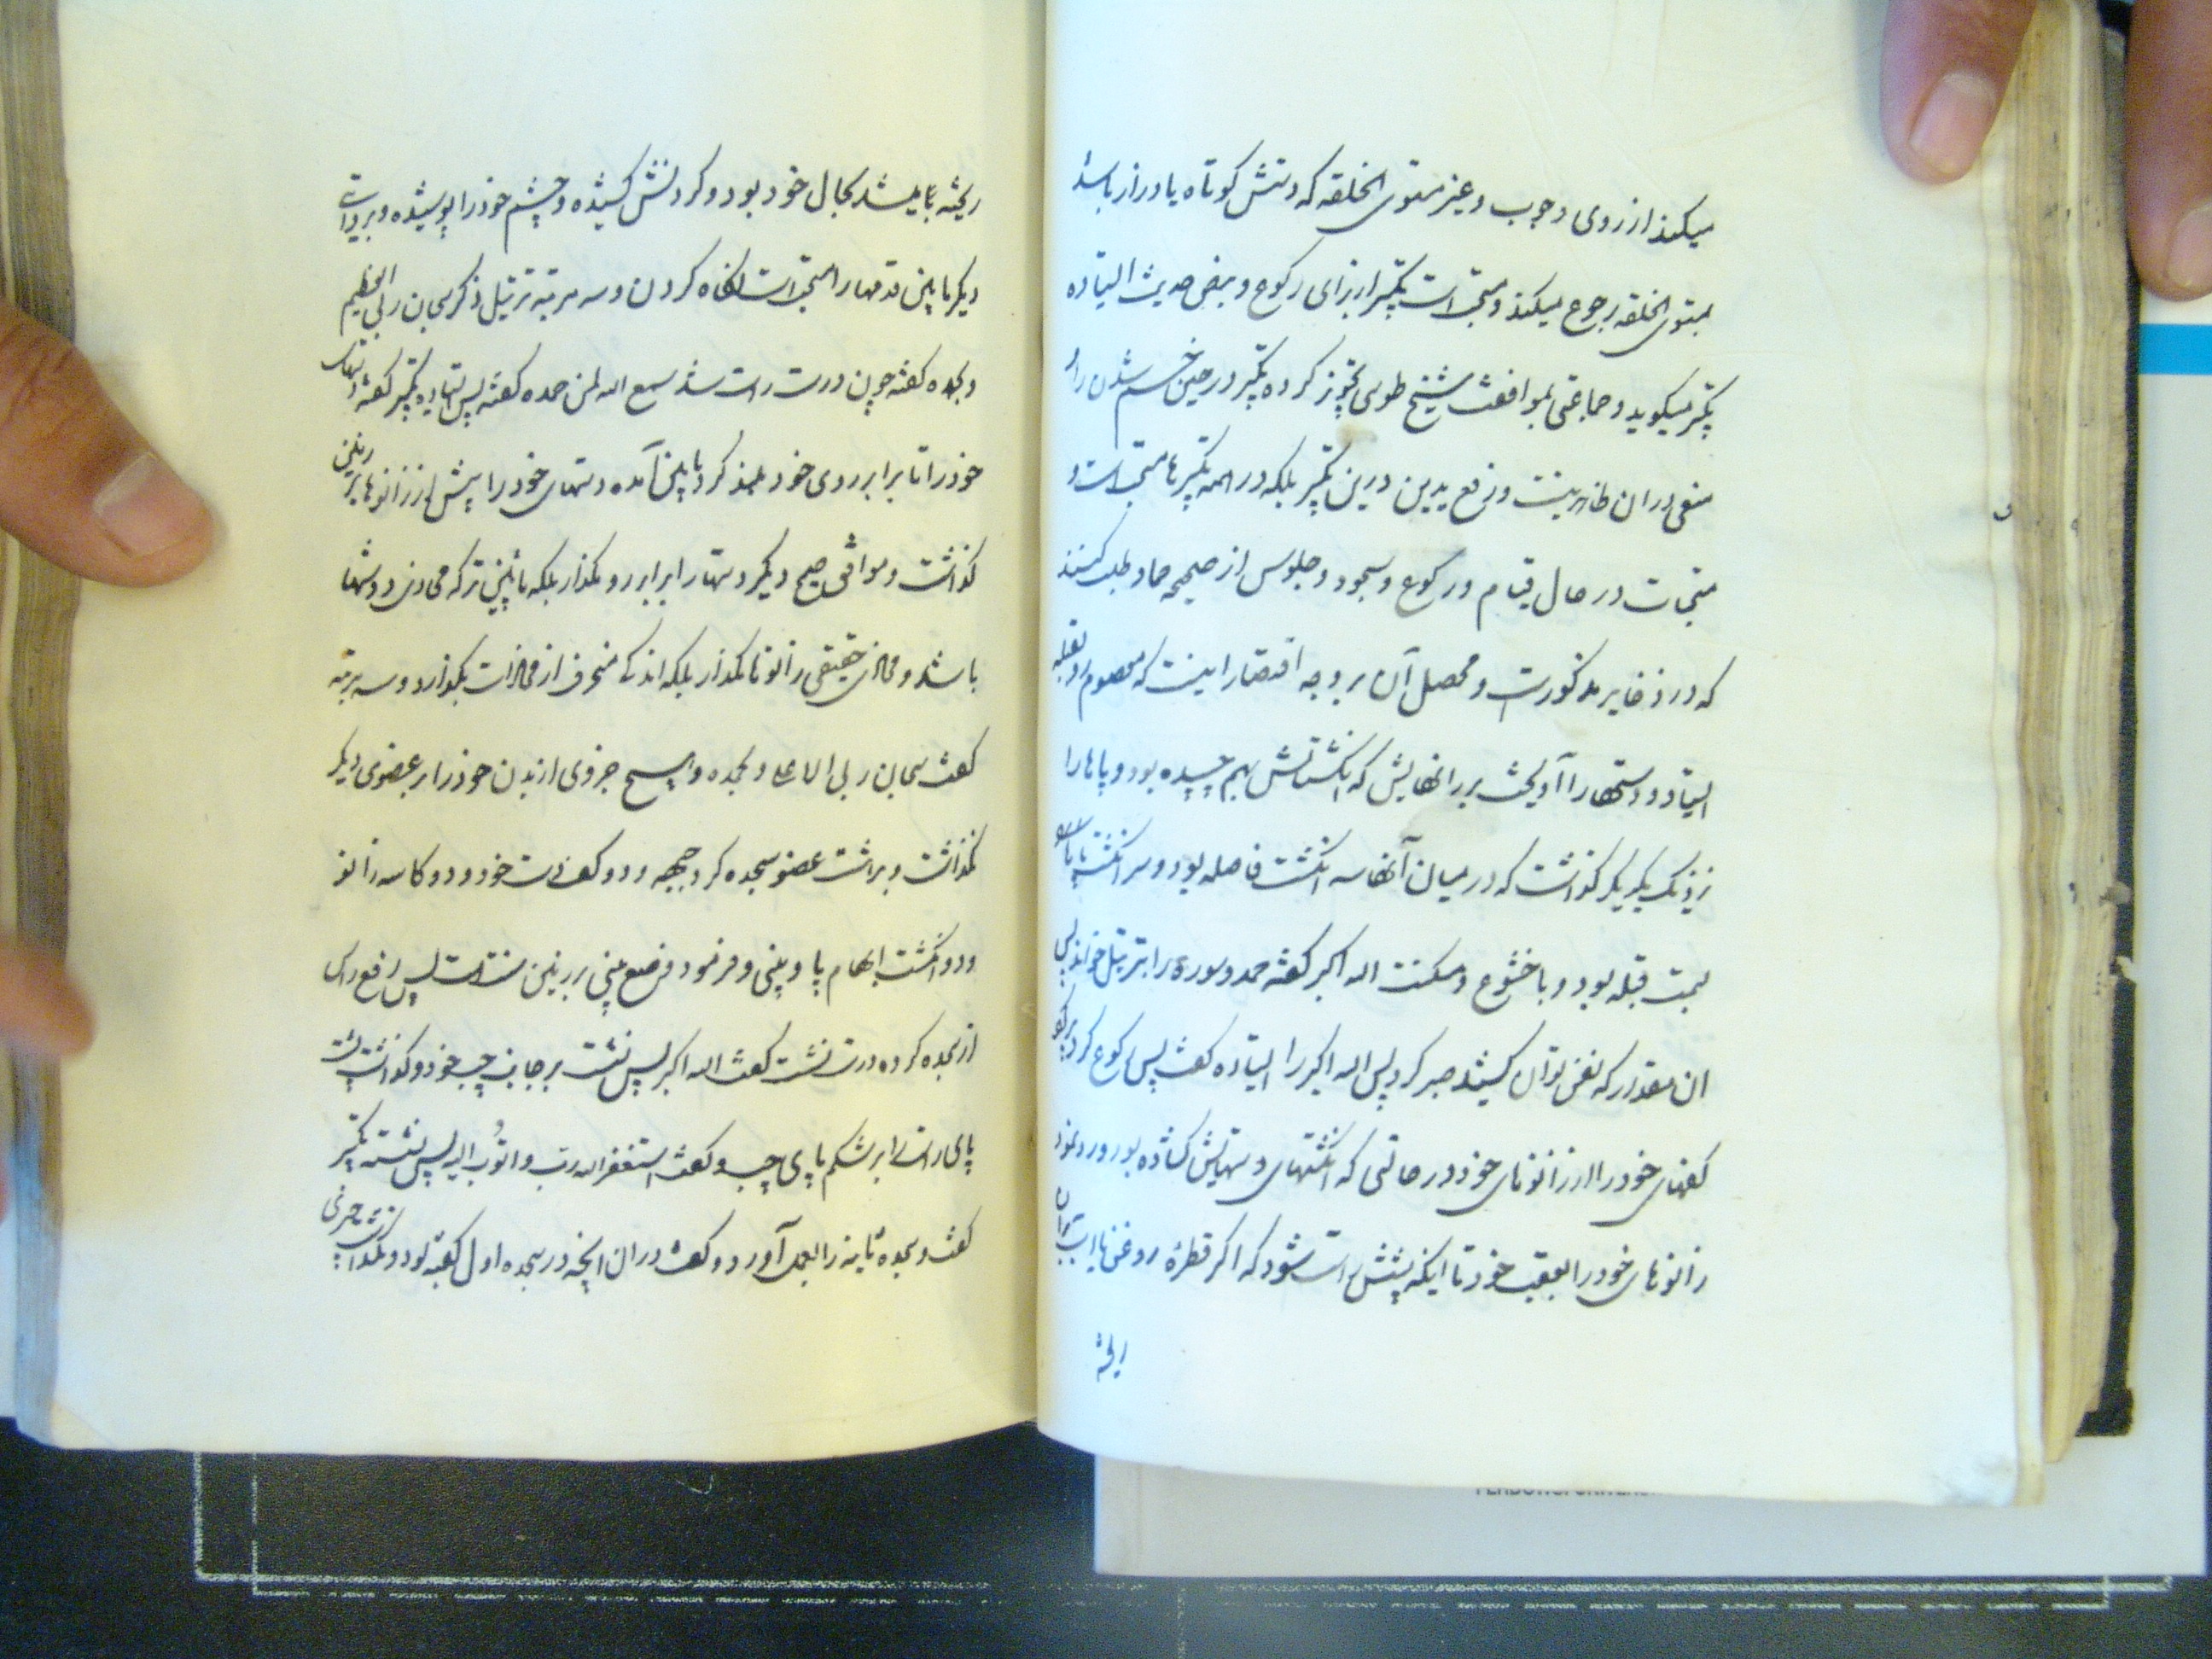 میکند از روی وجوب و غیر مستوی الخلقه که دستش کوتاه یا دراز باشد
بمستوی الخلقه رجوع میکند و مستحب است تکبیر از برای رکوع و بمقتضی حدیث ایستاده
تکبیر میکوید و جماعتی بموافقت شیخ طوسی تجویز کرده تکبیر در حین خم شدن را و
منعی دران ظاهر نیست و رفع یدین درین تکبیر بلکه در همه تکبیرها مستحب است و
مستحبات در حال قیام و رکوع و سجود و جلوس از صحیحه حماد طلب کنند
که در ذخایر مذکورست و محصل آن بر وجه اقتصار اینست که معصوم رو بقبله
ایستاد و دستها را آویخت بر رانهایش که انکشتانش بهم چسپیده بود و پاها را
نزدیک یکدیکر کذاشت که در میان آنها سه انکشت فاصله بود و سر انکشت پاها
بسمت قبله بود و با خشوع و مسکنت الله اکبر کفته حمد و سوره را بترتیل خواند پس
ان مقدار که نفس توان کشید صبر کرد پس الله اکبر را ایستاده کفت پس رکوع کرد پر کرد
کفهای خود را از زانوهای خود در حالتی که انکشتهای دستهایش کشاده بود و رد نمود
زانوهای خود را بعقب خود تا اینکه پشتش راست شود که اکر قطرهٔ روغن یا آب بران
ریخته
ریخته میشد بحال خود بود و کردنش کشیده و چشم خود را پوشیده و بروایت
دیکر مابین قدمها را مستحب است نکاه کردن و سه مرتبه ترتیل ذکر سبحان ربی العظیم
و بحمده کفته چون درست راست شد سمع الله لمن حمده کفته پس ایستاده تکبیر کفته دستهای
خود را تا برابر روی خود بلند کرد پایین آمده دستهای خود را پیش از زانوها بر زمین
کذاشت و موافق صحیح دیکر دستها را برابر رو نکذارد بلکه پایین تر که محاذی دوشها
باشد و محاذی حقیقی زانوها نکذارد بلکه اندکی منحرف از محاذات بکذارد و سه مرتبه
کفت سبحان ربی الاعلی و بحمده و هیچ جزوی از بدن خود را بر عضوی دیکر
نکذاشت و بر هشت عضو سجده کرد جبهه و دو کف دست خود و دو کاسه زانو
و دو انکشت ابهام پا و بینی و فرمود وضع بینی بر زمین سنت است پس رفع راس
از سجده کرده درست نشست کفت الله اکبر پس نشست بر جانب چپ خود و کذاشت پشت
پای راست را بر شکم پای چپ و کفت استغفر الله ربی و اتوب الیه پس نشسته تکبیر
کفت و سجده ثانیه را بعمل آورد و کفت دران انچه در سجده اول کفته بود و نکذاشت جزئی